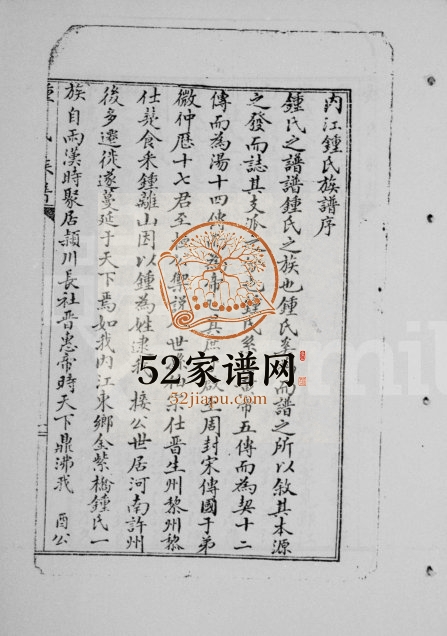 内江鍾氏族譜序
鍾氏之譜譜鍾氏之族也鍾氏而譜之所以敘其本源
之發而誌其支派也鍾氏帝五傳而為契十二
傳而為湯十四傳帝乙其庶啟至周封宋傳國于弟
微仲歷十七君至桓禦說世仕晉生州黎州黎
仕楚食采鍾離山因以鍾為姓逮我接公世居河南許州
後多遷徙遂蔓延于天下焉如我內江東鄉金紫橋鍾氏一
族自兩漢時聚居潁川長社晉惠帝時天下鼎沸我酉公
52家谱网
52jiapu.com